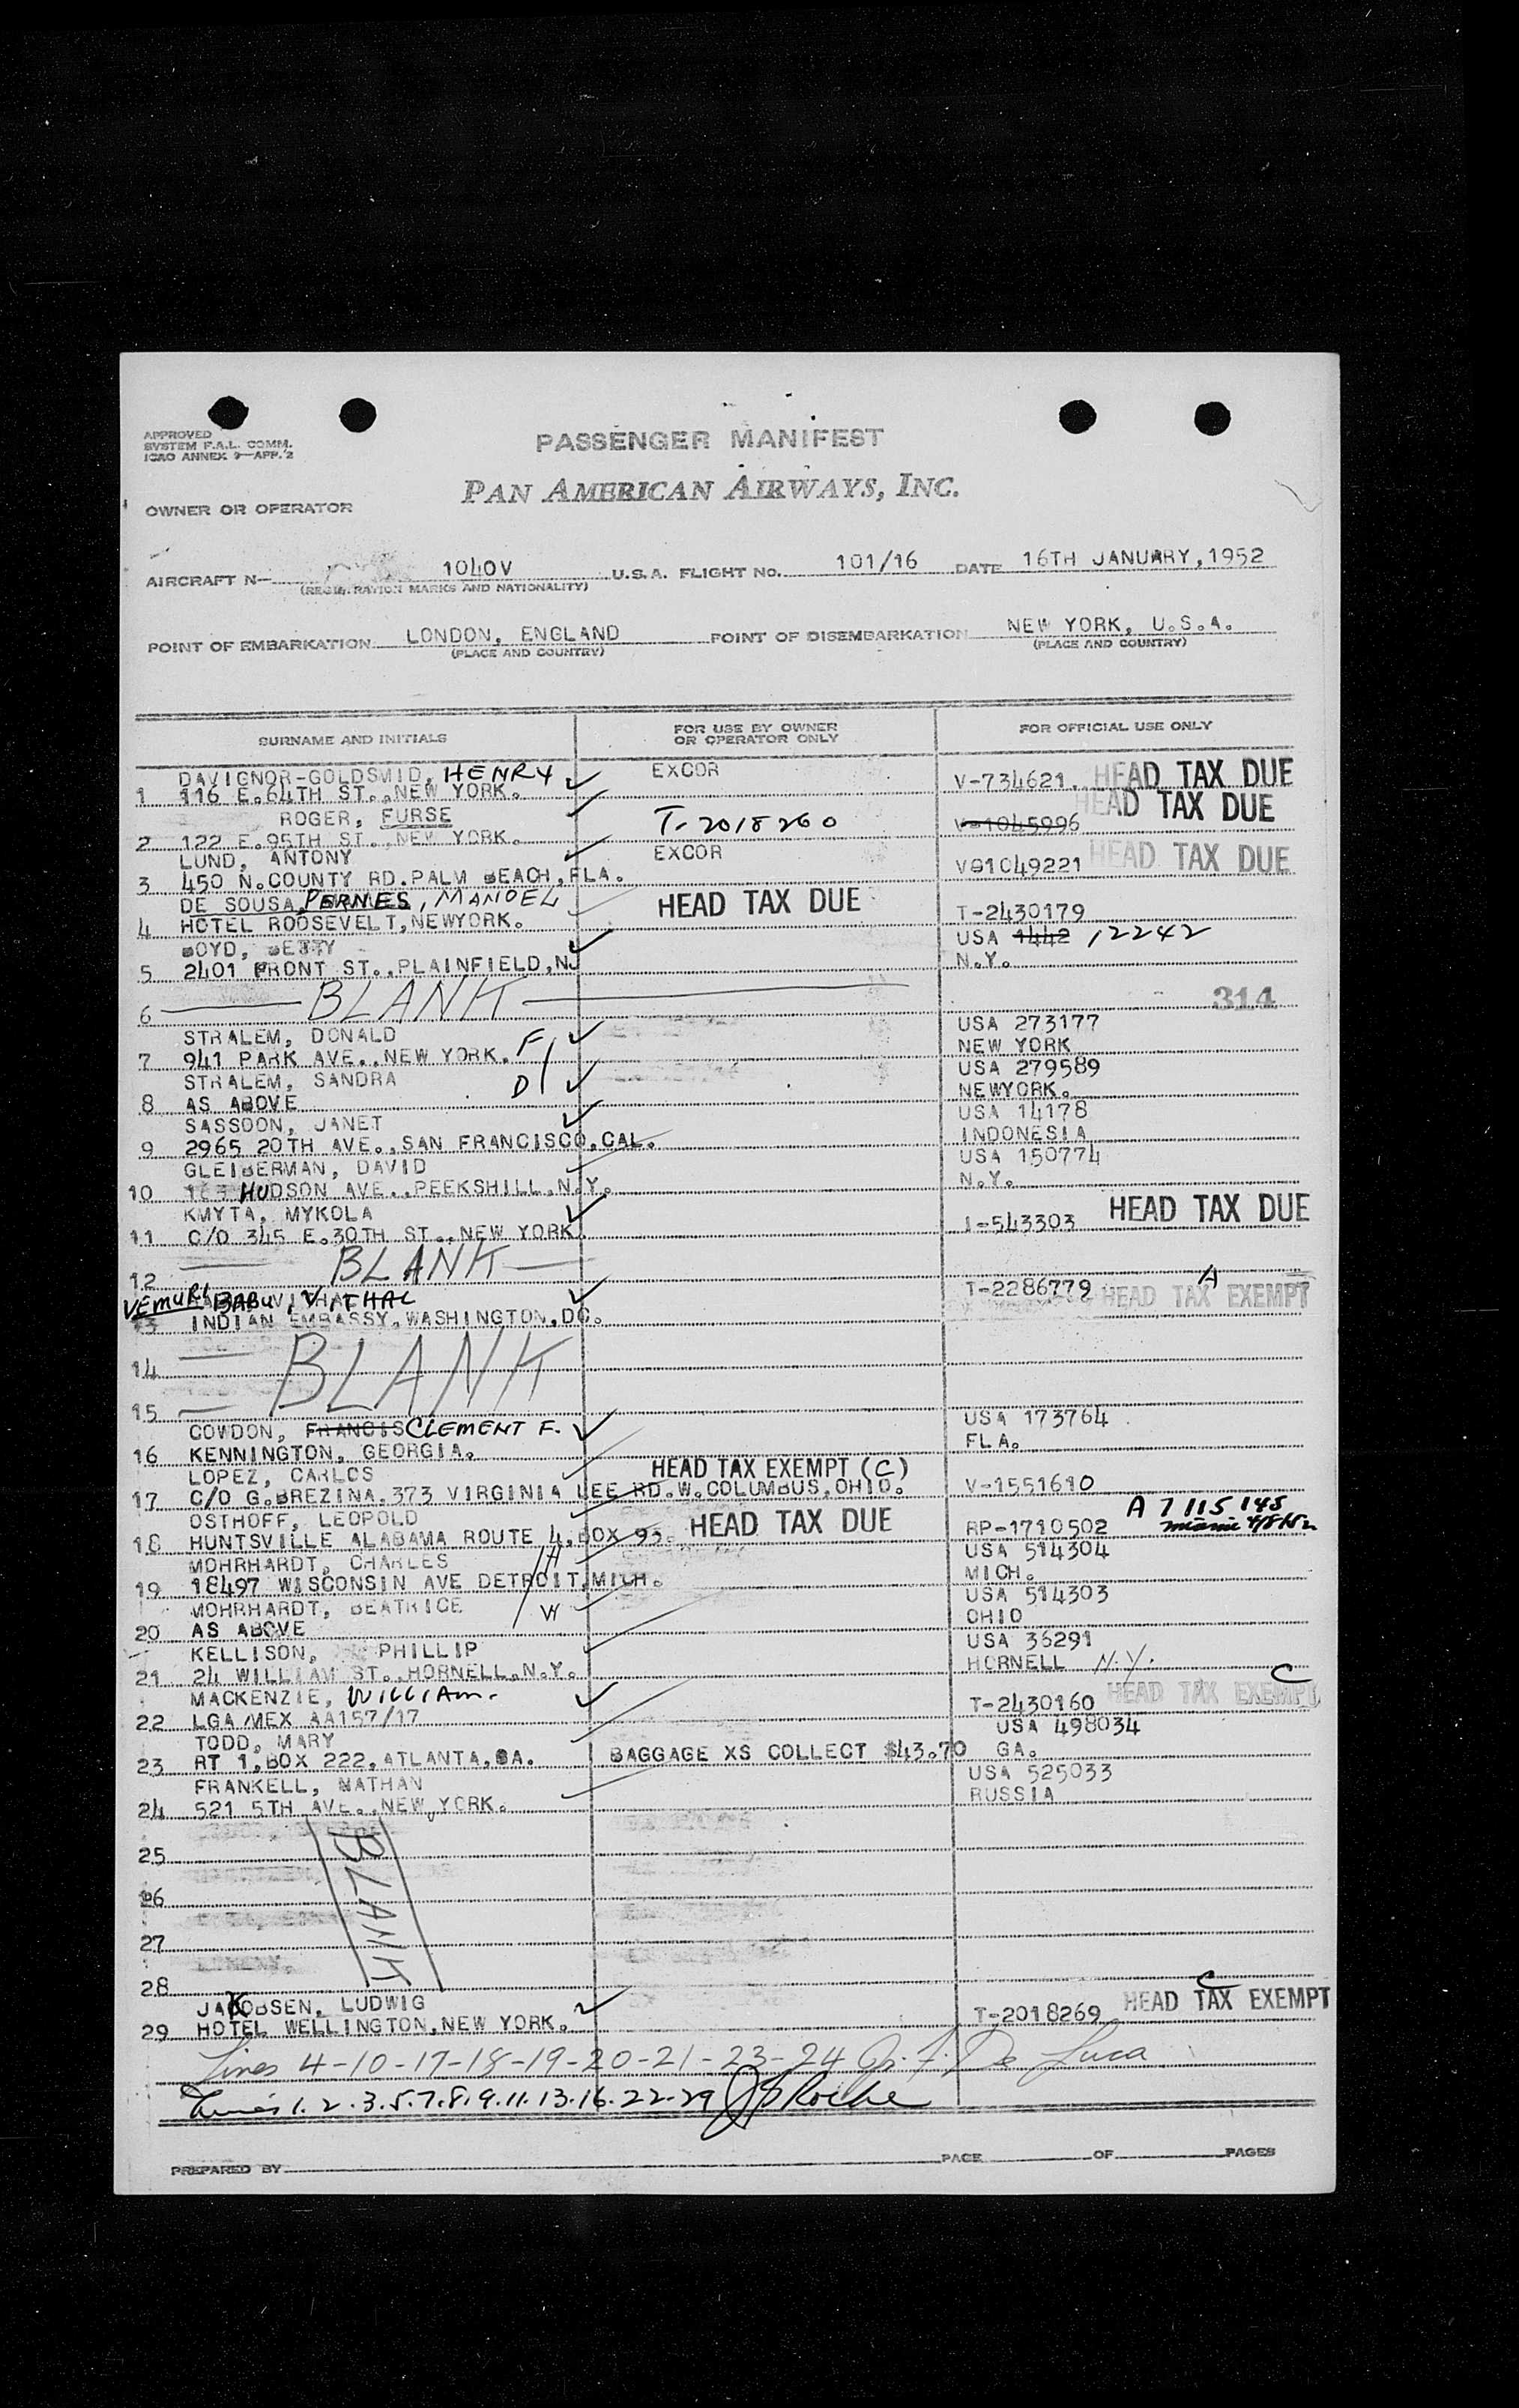 APPROVED
SYSTEM F.A.L. COMM.
ICAO ANNEX 9-APP. 2
PASSENGER MANIFEST
PAN AMERICAN AIRWAYS, INC.
OWNER OR OPERATOR
AIRCRAFT N- 1040V U.S.A. FLIGHT NO. 101/16 DATE 16TH JANUARY, 1952
(REGISTRATION MARKS AND NATIONALITY)
POINT OF EMBARKATION LONDON, ENGLAND POINT OF DISEMBARKATION NEW YORK, U.S.A.
(PLACE AND COUNTRY) (PLACE AND COUNTRY)
SURNAME AND INITIALS FOR USE BY OWNER OR OPERATOR ONLY FOR OFFICIAL USE ONLY
DAVIGNOR-GOLDSMID, HENRY EXCOR V-734621. HEAD TAX DUE
1 116 E.64TH ST., NEW YORK.
ROGER, FURSE T-2018260 V-1045996 HEAD TAX DUE
2 122 E.95TH ST., NEW YORK.
LUND, ANTONY EXCOR V01049221 HEAD TAX DUE
3 450 N.COUNTY RD.PALM BEACH, FLA.
DE SOUSA, PERNES, MANOEL HEAD TAX DUE T-2430179
4 HOTEL ROOSEVELT, NEWYORK.
BOYD, BETTY USA 1442 12242
5 2401 FRONT ST., PLAINFIELD, NJ N.Y.
6 BLANK 314
STRALEM, DONALD F USA 273177
7 941 PARK AVE., NEW YORK. NEW YORK
STRALEM, SANDRA D USA 279589
8 AS ABOVE NEWYORK.
SASSOON, JANET USA 14178
9 2965 20TH AVE., SAN FRANCISCO, CAL. INDONESIA
GLEIBERMAN, DAVID USA 150774
10 HUDSON AVE., PEEKSHILL, N.Y. N.Y.
KMYTA, MYKOLA I-543303 HEAD TAX DUE
11 C/O 345 E.30TH ST., NEW YORK
12 BLANK
VEMURI BABU, VITHAL T-2286779 HEAD TAX EXEMPT A
13 INDIAN EMBASSY, WASHINGTON, DC.
14 BLANK
15
COWDON, FRANCIS CLEMENT F. USA 173764
16 KENNINGTON, GEORGIA. FLA.
LOPEZ, CARLOS HEAD TAX EXEMPT (C)
17 C/O G.BREZINA.373 VIRGINIA LEE RD.W.COLUMBUS, OHIO. V-1551610
OSTHOFF, LEOPOLD HEAD TAX DUE RP-1710502 A 7 115 148
18 HUNTSVILLE ALABAMA ROUTE 4, BOX
MOHRHARDT, CHARLES H USA 514304
19 18497 WISCONSIN AVE DETROIT, MICH. MICH.
MOHRHARDT, BEATRICE W USA 514303
20 AS ABOVE OHIO
KELLISON, PHILLIP USA 36291
21 24 WILLIAM ST., HORNELL, N.Y. HORNELL N.Y.
MACKENZIE, WILLIAM. T-2430160 HEAD TAX EXEMPT C
22 LGA/MEX AA157/17
TODD, MARY USA 498034
23 RT 1, BOX 222, ATLANTA, GA. BAGGAGE XS COLLECT $43.70 GA.
FRANKELL, NATHAN USA 525033
24 521 5TH AVE., NEW YORK. RUSSIA
25
26 BLANK
27
28
JAKOBSEN, LUDWIG T-2018269 HEAD TAX EXEMPT C
29 HOTEL WELLINGTON, NEW YORK.
Lines 4-10-17-18-19-20-21-23-24 De Luca
Lines 1.2.3.5.7.8.9.11.13.16.22-29 Roche
PREPARED BY PAGE OF PAGES